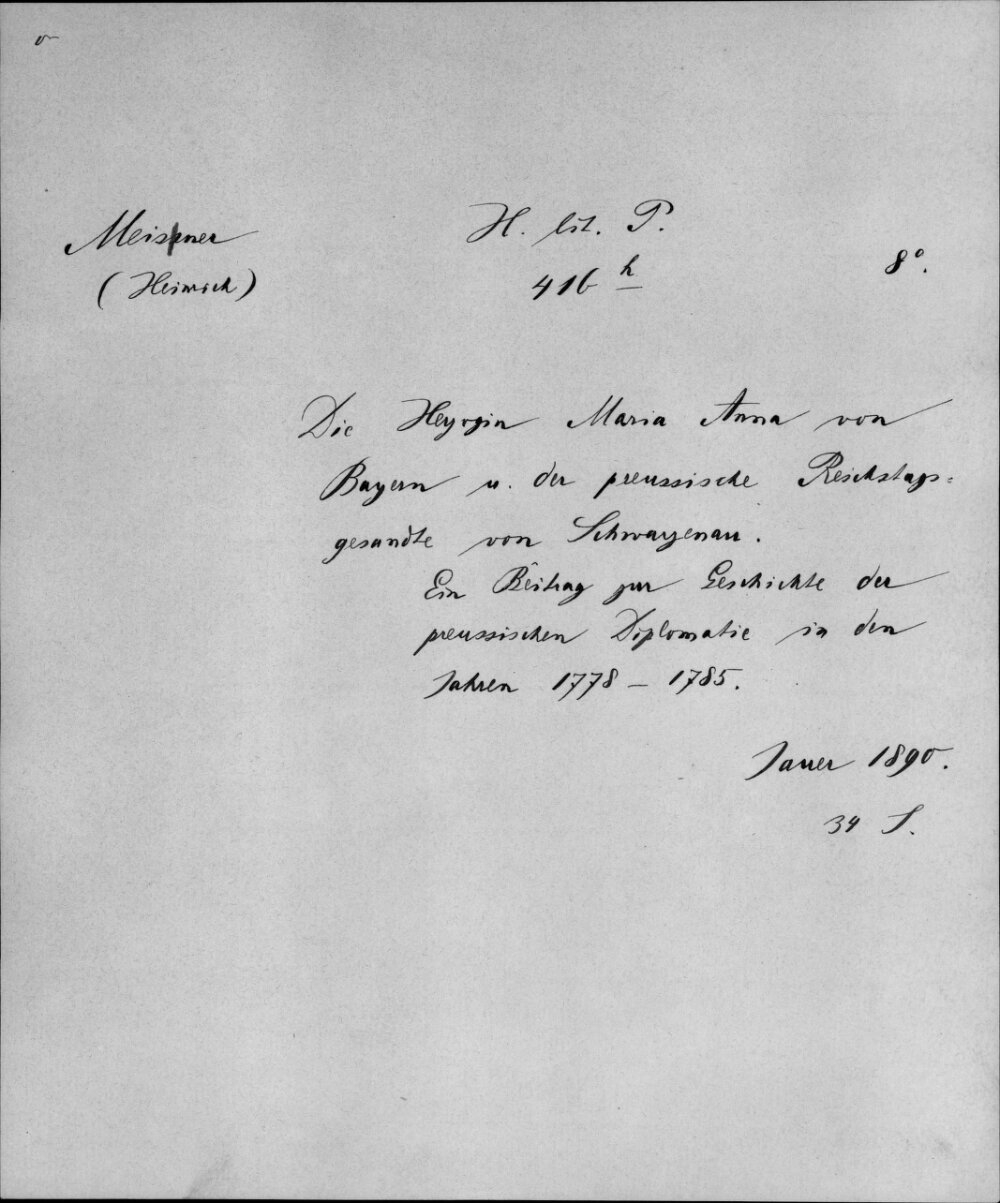 Meisner
(Heinrich)
H. lit. P.
416 h
8°.
Die Herzogin Maria Anna von
Bayern u. der preussische Reichstags=
gesandte von Schwarzenau.
Ein Beitrag zur Geschichte der
preussischen Diplomatie in den
Jahren 1778 – 1785.
Jauer 1890.
34 S.